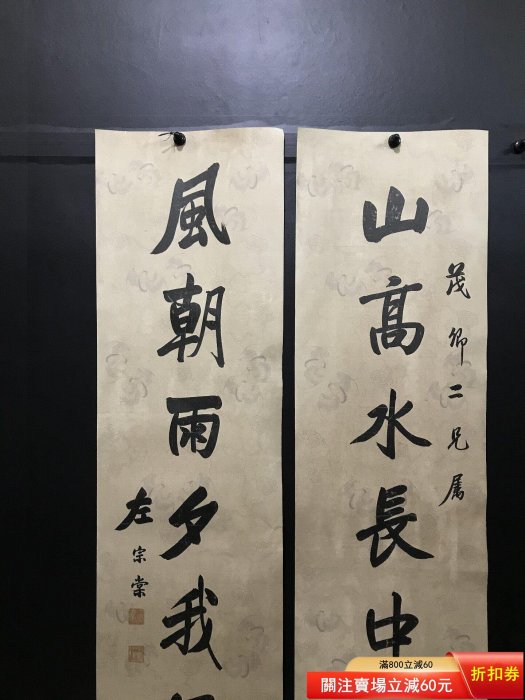 山高水長中
茂卿二兄属
風朝雨夕我
左宗棠
滿800立減60
關注賣場立減60元
折扣券